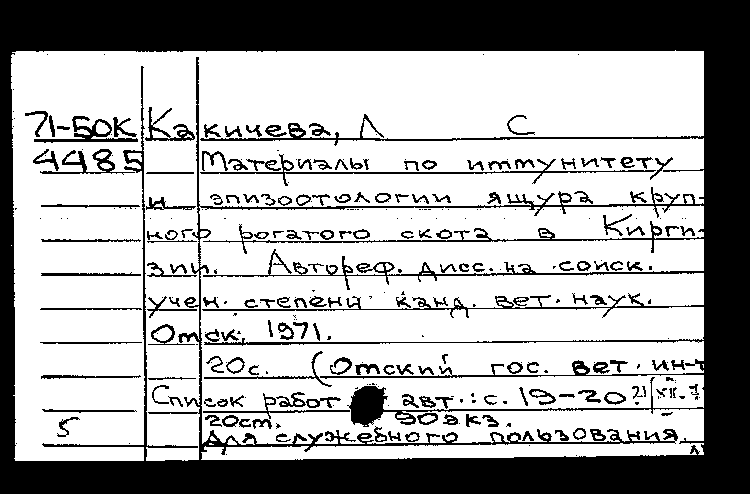 71-БОК Какичева, Л С
4485 Материалы по иммунитету
и эпизоотологии ящура круп-
ного рогатого скота в Кирги-
зии. Автореф. дисс. на соиск.
учен. степени канд. вет. наук.
Омск, 1971.
20с. (Омский гос. вет. ин-т
Список работ авт.: с. 19-20.
20см. 90экз.
5 Для служебного пользования.